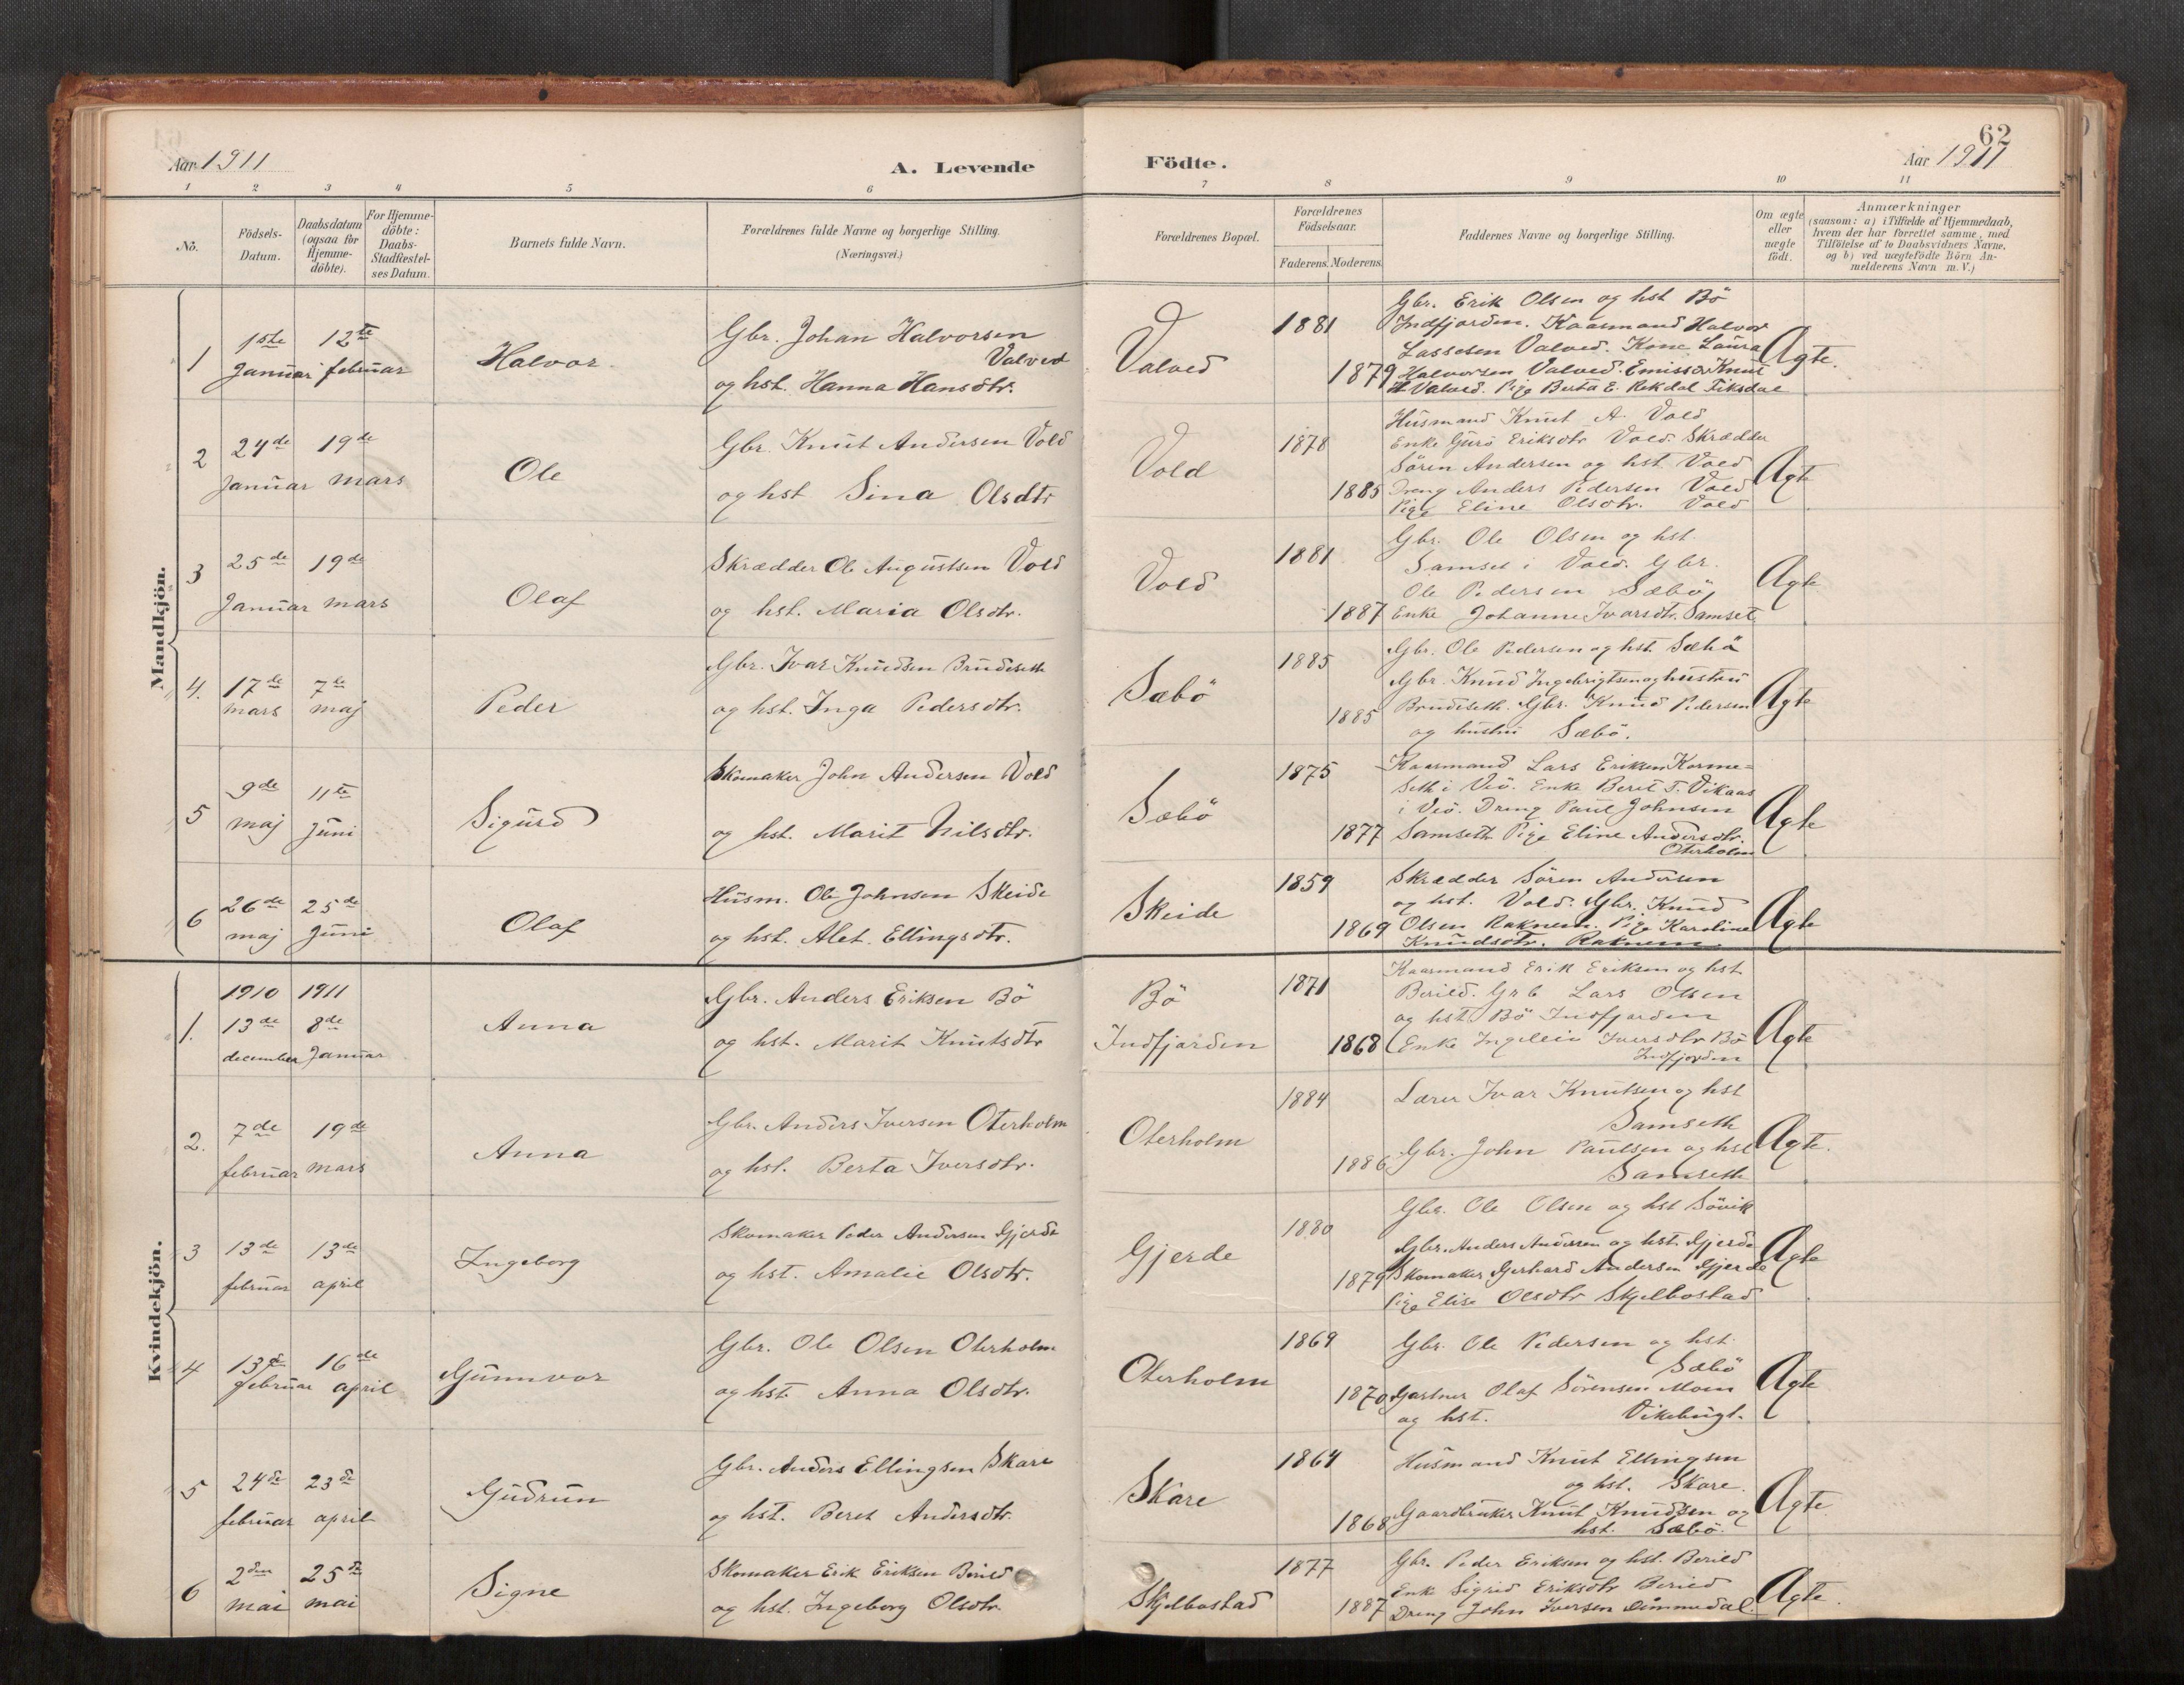 Aar 1911
A. Levende
Födte.
62
Aar 1911
1 2 3 4 5 6 7 8 9 10 11
No.
Födsels-Datum.
Daabsdatum (ogsaa for Hjemme-döbte).
For Hjemme-döbte: Daabs-Stadfæstel-ses Datum.
Barnets fulde Navn.
Forældrenes fulde Navne og borgerlige Stilling.
(Næringsvei.)
Forældrenes Bopæl.
Forældrenes Födselsaar.
Faderens. Moderens.
Faddernes Navne og borgerlige Stilling.
Om ægte eller uægte födt.
Anmærkninger
(saasom: a) i Tilfælde af Hjemmedaab,
hvem der har forrettet samme, med
Tilföielse af to Daabsvidners Navne,
og b) ved uægtefödte Börn An-
melderens Navn m. V.)
Mandkjön.
1
1ste Januar
12te februar
Halvor
Gbr. Johan Halvorsen
Valved
og hst. Hanna Hansdtr.
Valved
1881
1879
Gbr. Erik Olsen og hst Bö
Indfjorden. Kaarmand Halvor
Lassesen Valved. Kone Laura
Halvorsen Valved. Emissær Knut
H Valved. Pige Berta E. Rekdal Fiksdal
Ægte.
2
24de Januar
19de mars
Ole
Gbr. Knut Andersen Vold
og hst Sina Olsdtr
Vold
1878
1885
Husmand Knut A. Vold
Enke Guro Eriksdtr Vold. Skrædder
Sören Andersen og hst. Vold
Dreng Anders Pedersen Vold
Pige Eline Olsdtr. Vold
Ægte
3
25de Januar
19de mars
Olaf
Skrædder Ole Augustsen Vold
og hst. Maria Olsdtr.
Vold
1881
1887
Gbr. Ole Olsen og hst.
Samset i Vold. Gbr.
Ole Pedersen Sæbö,
Enke Johanne Ivarsdtr. Samset
Ægte
4.
17de mars
7de maj
Peder
Gbr. Ivar Knudsen Brudeseth
og hst. Inga Pedersdtr.
Sæbö
1885
1885
Gbr. Ole Pedersen og hst Sæbö
Gbr. Knud Ingebrigtsen og hustru
Brudeseth. Gbr. Knud Pedersen
og hustru Sæbö.
Ægte
5
9de maj
11te Juni
Sigurd
Skomaker John Andersen Vold
og hst. Marit Nilsdtr.
Sæbö
1875
1877
Kaarmand Lars Eriksen Korme=
seth i Veö. Enke Berit T. Vikaas
i Veö. Dreng Paul Johnsen
Samseth Pige Eline Andersdtr.
Oterholm
Ægte
6
26de maj
25de Juni
Olaf
Husm. Ole Johnsen Skeide
og hst. Alet. Ellingsdtr.
Skeide
1859
1869
Skrædder Sören Andersen
og hst. Vold. Gbr. Knud
Olsen Raknem. Pige Karoline
Knudsdtr. Raknem.
Ægte
Kvindekjön.
1.
1910 13de december
1911 8de Januar
Anna
Gbr. Anders Eriksen Bö
og hst. Marit Knutsdtr
Bö
Indfjorden
1871
1868
Kaarmand Erik Eriksen og hst
Berild. Grb Lars Olsen
og hst. Bö Indfjorden
Enke Ingeleiv Iversdtr Bö
Indfjorden
Ægte
2.
7de februar
19de mars
Anna
Gbr. Anders Iversen Oterholm
og hst. Berta Iversdtr.
Oterholm
1884
1886
Lærer Ivar Knutsen og hst
Samseth
Gbr. John Paulsen og hst
Samseth
Ægte.
3
13de februar
13de april
Ingeborg
Skomaker Peder Andersen Gjerde
og hst. Amalie Olsdtr.
Gjerde
1880
1879
Gbr. Ole Olsen og hst Sövik
Gbr. Anders Andersen og hst. Gjerde
Skomaker Gerhard Andersen Gjerde
Pige Elise Olsdtr Skjelbostad
Ægte
4
13de februar
16de april
Gunnvor
Gbr. Ole Olsen Oterholm
og hst. Anna Olsdtr.
Oterholm
1869
1870
Gbr. Ole Pedersen og hst.
Sæbö
Gartner Olaf Sörensen Moen
og hst. Vikebugt.
Ægte
5
24de februar
23de april
Gudrun
Gbr. Anders Ellingsen Skare
og hst. Beret Andersdtr.
Skare
1864
1868
Husmand Knut Ellingsen
og hst. Skare.
Gaardbruker Knut Knudsen og
hst. Sæbö.
Ægte.
6
2den mai
25de mai
Signe
Skomaker Erik Eriksen Berild
og hst. Ingeborg Olsdtr.
Skjelbostad
1877
1887
Gbr. Peder Eriksen og hst. Berild
Enke Sigrid Eriksdtr Berild
Dreng John Iversen Dimmedal.
Ægte.